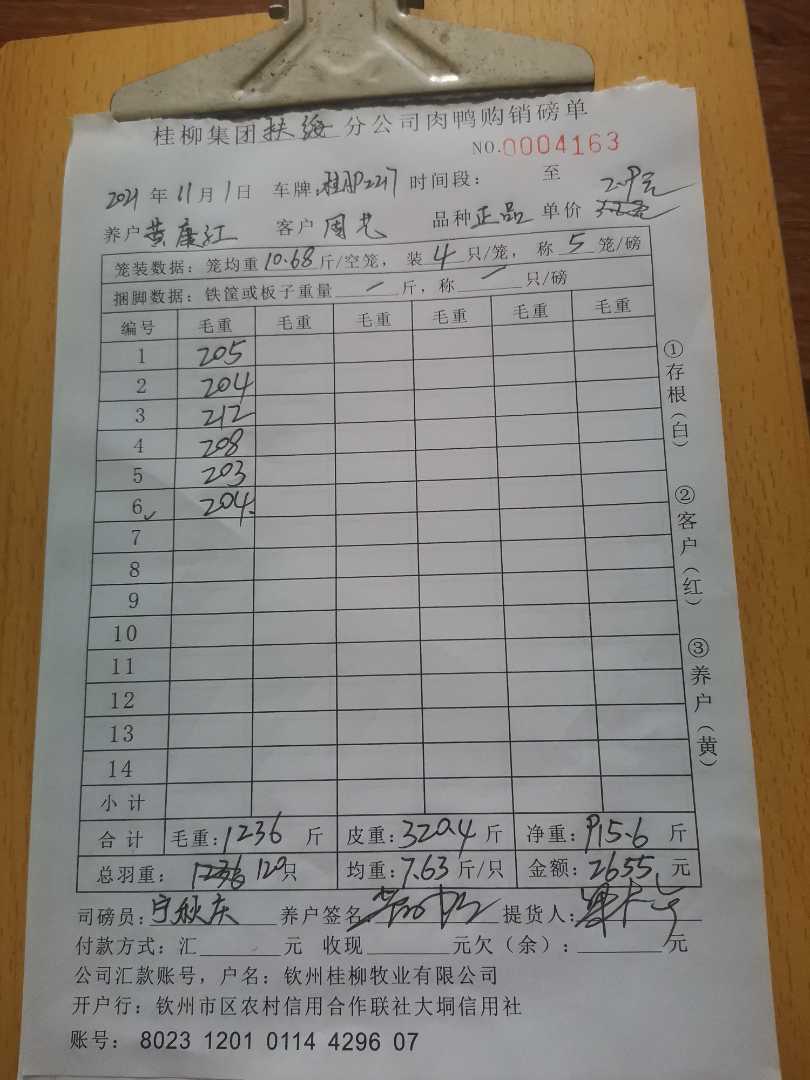 桂柳集团扶绥分公司肉鸭购销磅单
NO.0004163
2021年11月1日 车牌:桂AP2217 时间段: 至
养户黄康江 客户周艺 品种正品 单价2.9元
笼装数据:笼均重10.68斤/空笼,装4只/笼,称5笼/磅
捆脚数据:铁筐或板子重量—斤,称—只/磅
编号 毛重 毛重 毛重 毛重 毛重 毛重
1 205
2 204
3 212
4 208
5 203
6 204
7
8
9
10
11
12
13
14
小计
合计 毛重:1236斤 皮重:320.4斤 净重:915.6斤
总羽重: 120只 均重:7.63斤/只 金额:2655元
司磅员:宁秋庆 养户签名: 提货人:
付款方式:汇 元 收现 元欠(余): 元
公司汇款账号,户名:钦州桂柳牧业有限公司
开户行:钦州市区农村信用合作联社大垌信用社
账号: 8023 1201 0114 4296 07
①存根(白)
②客户(红)
③养户(黄)